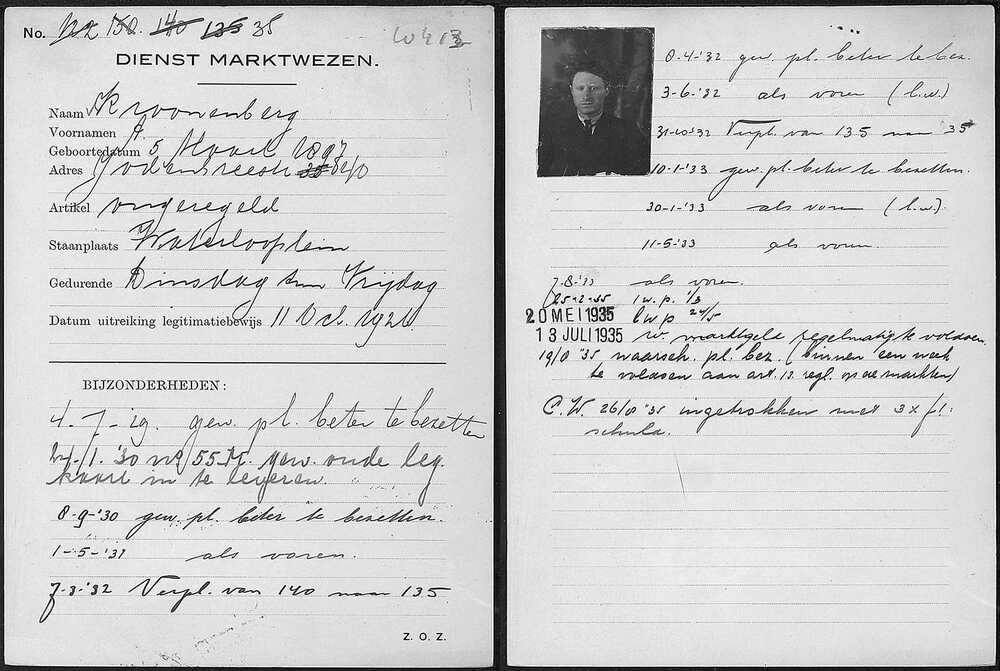 No. 150. 140 135 35
DIENST MARKTWEZEN.
Naam Kroonenberg
Voornamen A.
Geboortedatum 5 Maart 1897
Adres Jodenbreestr
Artikel ongeregeld
Staanplaats Waterlooplein
Gedurende Dinsdag t/m Vrijdag
Datum uitreiking legitimatiebewijs 11 Oct. 1926
BIJZONDERHEDEN:
4-7-29. gew. pl. beter te bezetten
24/1.'30 gew. oude leg.
kaart in te leveren.
8-9-'30 gew. pl. beter te bezetten.
1-5-'31 als voren.
7-3-'32 Verpl. van 140 naar 135
Z. O. Z.
8-4-'32 gew. pl. beter te bez.
3-6-'32 als voren (l.w.)
31-10-'32 Verpl. van 135 naar 35
10-1-'33 gew. pl. beter te bezetten.
30-1-'33 als voren (l.w.).
11-5-'33 als voren.
7-8-'33 als voren.
25-2-35 l w. p. 1/3
20 MEI 1935 l w p 24/5
13 JULI 1935 w. marktgeld regelmatig te voldoen.
19/8 '35 waarsch. pl. bez. (binnen een week
te voldoen aan art. 12 regl. op de markten)
C.W. 26/8 '35 ingetrokken met 3 x f1.-
schuld.